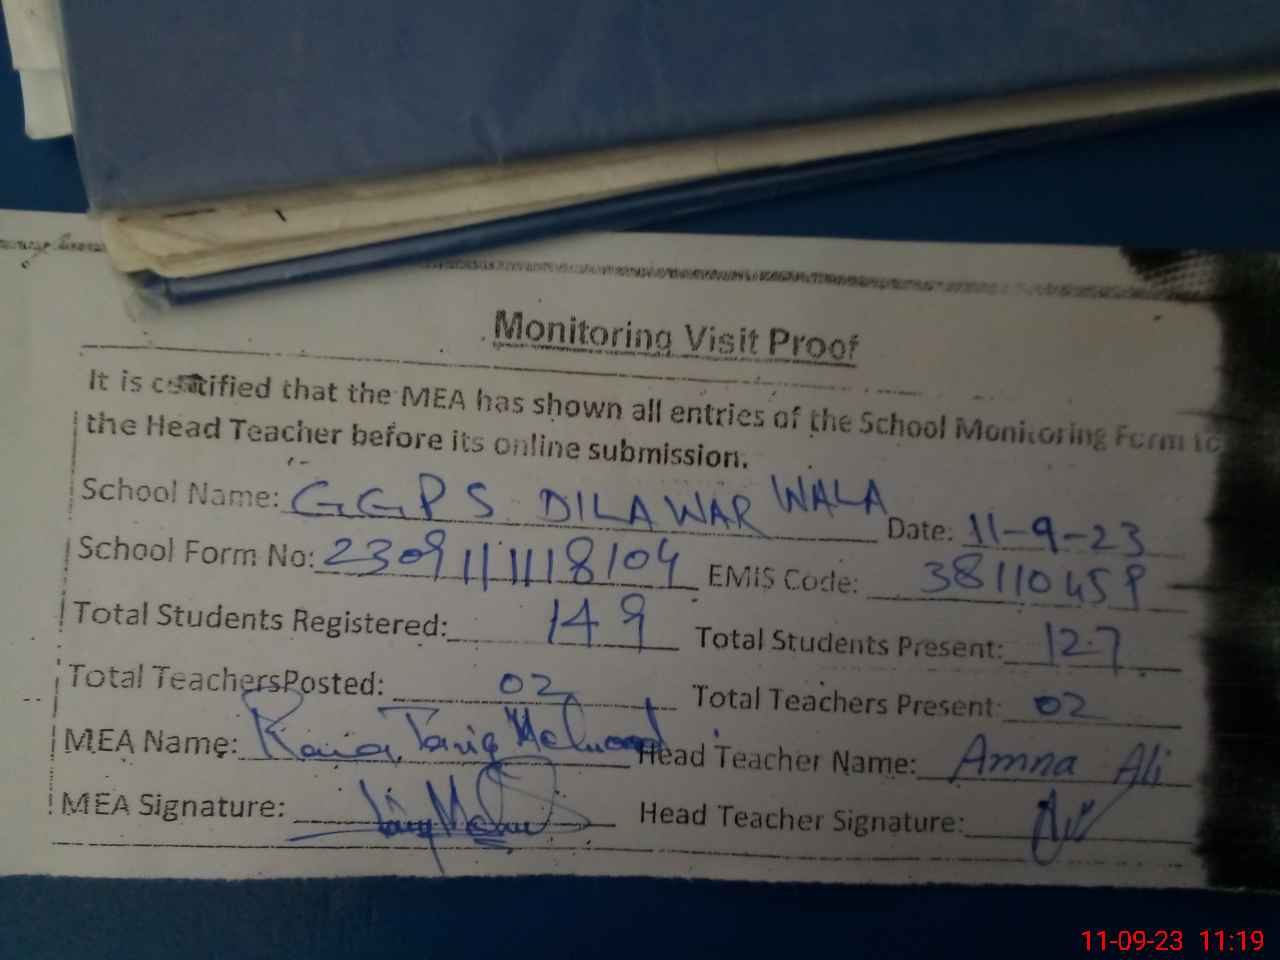 Monitoring Visit Proof
It is certified that the MEA has shown all entries of the School Monitoring Form to
the Head Teacher before its online submission.
School Name: GGPS DILAWAR WALA Date: 11-9-23
School Form No: 2309111118104 EMIS Code: 38110459
Total Students Registered: 149 Total Students Present: 127
Total TeachersPosted: 02 Total Teachers Present: 02
MEA Name: Rana Tariq Mehmood Head Teacher Name: Amna Ali
MEA Signature: Head Teacher Signature:
11-09-23 11:19